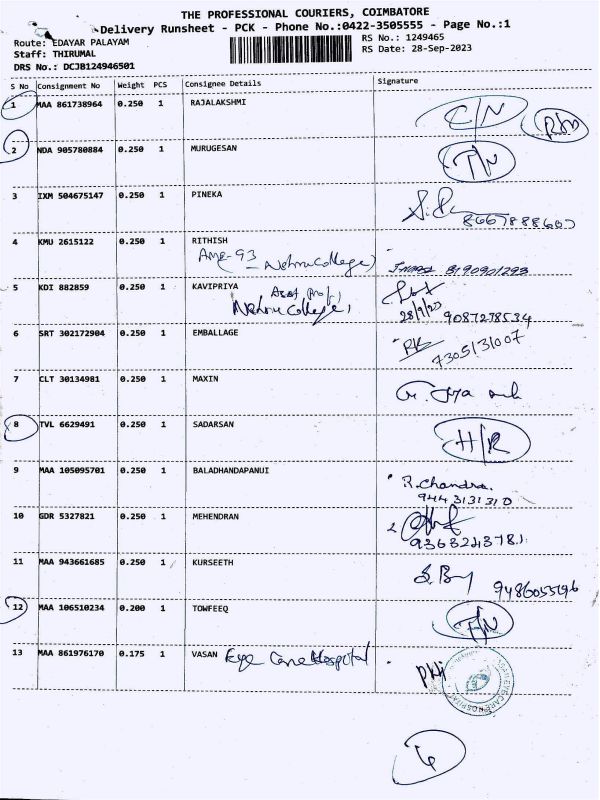 THE PROFESSIONAL COURIERS, COIMBATORE
Delivery Runsheet - PCK - Phone No.:0422-3505555 - Page No.:1
Route: EDAYAR PALAYAM
RS No.: 1249465
Staff: THIRUMAL
RS Date: 28-Sep-2023
DRS No.: DCJB124946501
S No Consignment No Weight PCS Consignee Details Signature
1 MAA 861738964 0.250 1 RAJALAKSHMI C/N
2 NDA 905780884 0.250 1 MURUGESAN
3 IXM 504675147 0.250 1 PINEKA
4 KMU 2615122 0.250 1 RITHISH
Nehru College) 8190901293
5 KDI 882859 0.250 1 KAVIPRIYA Asst prof,
Nehru College,
28/9/23 9087278534
6 SRT 302172904 0.250 1 EMBALLAGE
7305131007
7 CLT 30134981 0.250 1 MAXIN
8 TVL 6629491 0.250 1 SADARSAN H/R
9 MAA 105095701 0.250 1 BALADHANDAPANUI R. Chandra.
9443131310
10 GDR 5327821 0.250 1 MEHENDRAN
9363243781
11 MAA 943661685 0.250 1 KURSEETH
12 MAA 106510234 0.200 1 TOWFEEQ
13 MAA 861976170 0.175 1 VASAN Eye Care Hospital